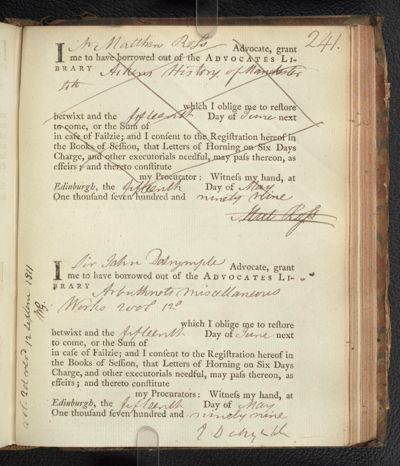 241.
I Mr Matthew Ross Advocate, grant
me to have borrowed out of the ADVOCATES LI-
BRARY Aikins History of Manchester
4to
which I oblige me to restore
betwixt and the fifteenth Day of June next
to come, or the Sum of
in case of Failzie; and I consent to the Registration hereof in
the Books of Session, that Letters of Horning on Six Days
Charge, and other executorials needful, may pass thereon, as
effeirs; and thereto constitute
my Procurator: Witness my hand, at
Edinburgh, the fifteenth Day of May
One thousand seven hundred and ninety nine
Matt Ross
I Sir John Dalrymple Advocate, grant
me to have borrowed out of the ADVOCATES LI-
BRARY Arbuthnots miscellaneous
Works 2 vol 12o
which I oblige me to restore
betwixt and the fifteenth Day of June next
to come, or the Sum of
in case of Failzie; and I consent to the Registration hereof in
the Books of Session, that Letters of Horning on Six Days
Charge, and other executorials needful, may pass thereon, as
effeirs; and thereto constitute
my Procurators: Witness my hand, at
Edinburgh, the fifteenth Day of May
One thousand seven hundred and ninety nine
vol. 2d 1811